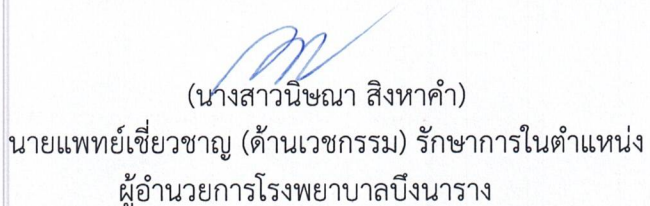 (นางสาวนิษณา สิงหาคำ)
นายแพทย์เชี่ยวชาญ (ด้านเวชกรรม) รักษาการในตำแหน่ง
ผู้อำนวยการโรงพยาบาลบึงนาราง